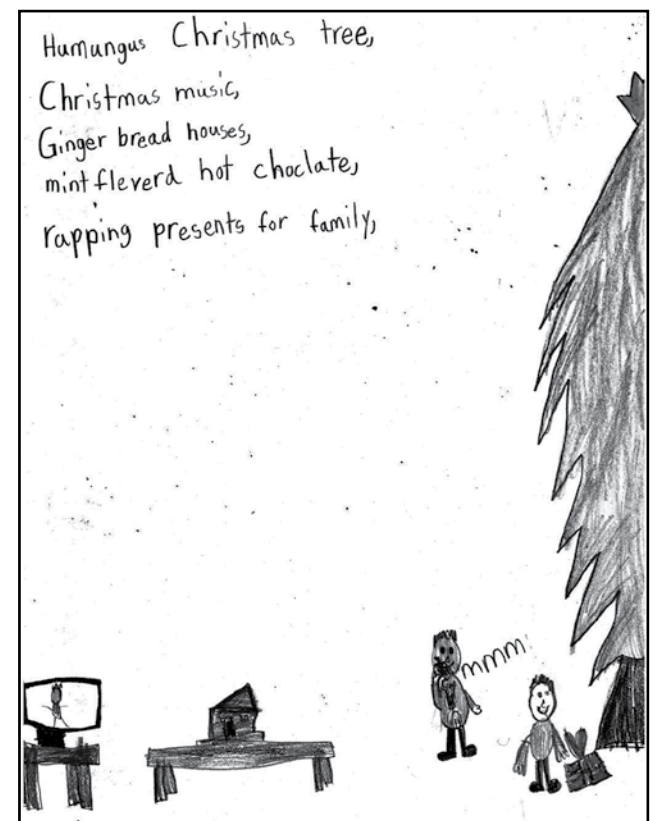 Humungus Christmas tree,
Christmas music,
Ginger bread houses,
mint fleverd hot choclate,
rapping presents for family,
mmm